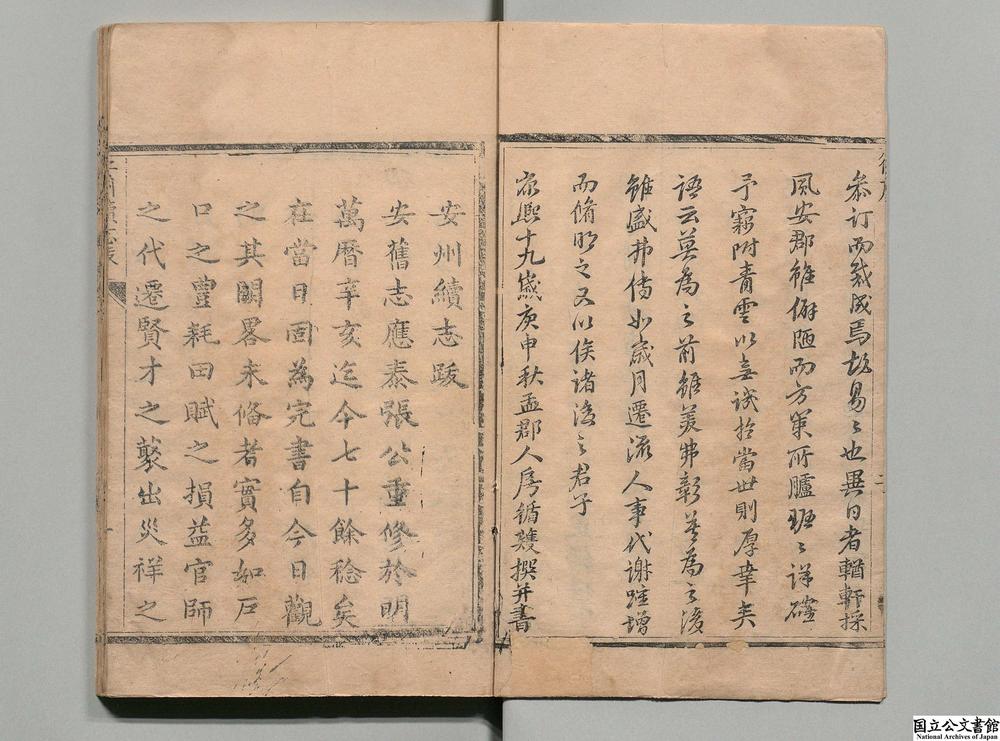 叅订而裁成焉故易易也異日者輶軒採
風安郡雖僻陋而方策所臚班班詳確
予竊附青雲以喜識於當世則厚幸矣
語云莫為之前雖美弗彰莫為之後
雖盛弗傳如歲月遷流人事代謝踵增
而脩明之又以俟諸後之君子
康熙十九歲庚申秋孟郡人房循矱撰并書
安州續志跋
安舊志應泰張公重修於明
萬曆辛亥迄今七十餘稔矣
在當日固為完書自今日觀
之其闕畧未偹者實多如戸
口之豊耗田賦之損益官師
之代遷賢才之褧出災祥之
国立公文書館
National Archives of Japan